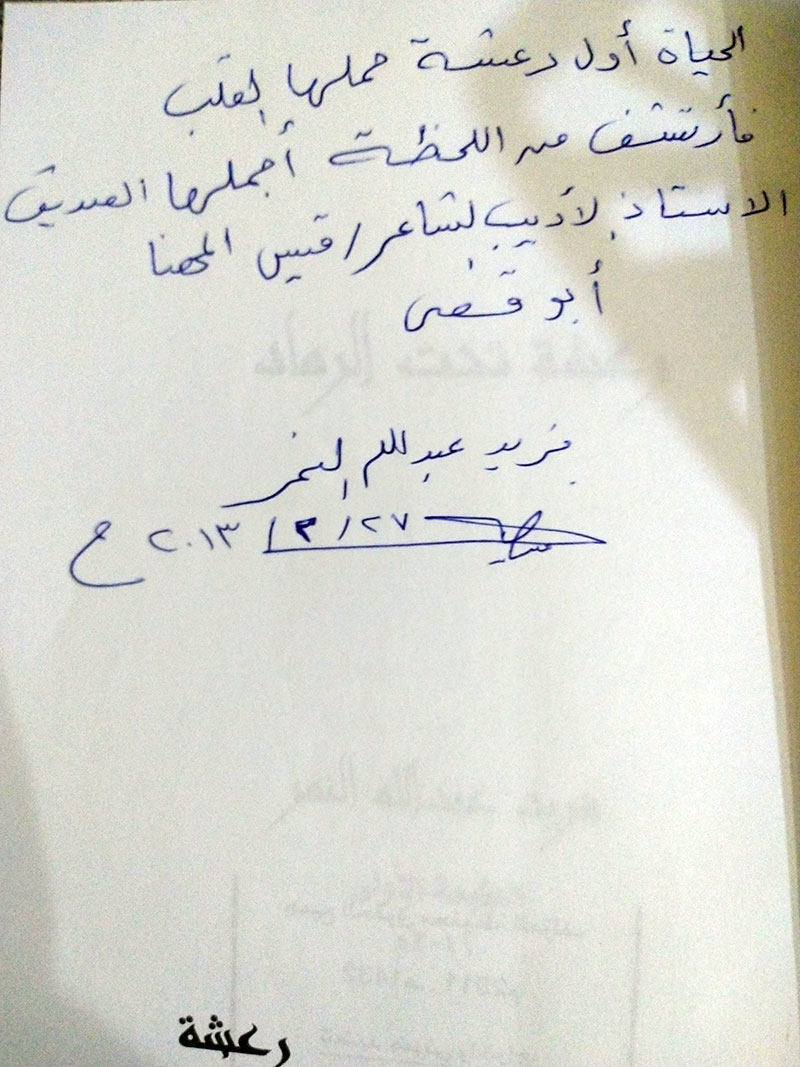 الحياة أول رعشة حملها القلب
فأرتشف من اللحظة أجملها الصديق
الاستاذ الأديب الشاعر / قيس المهنا
أبو قصي
فريد عبدالله النمر
٢٧ / ٣ / ٢٠١٣ م
رعشة تحت الرماد
فريد عبدالله النمر
رعشة